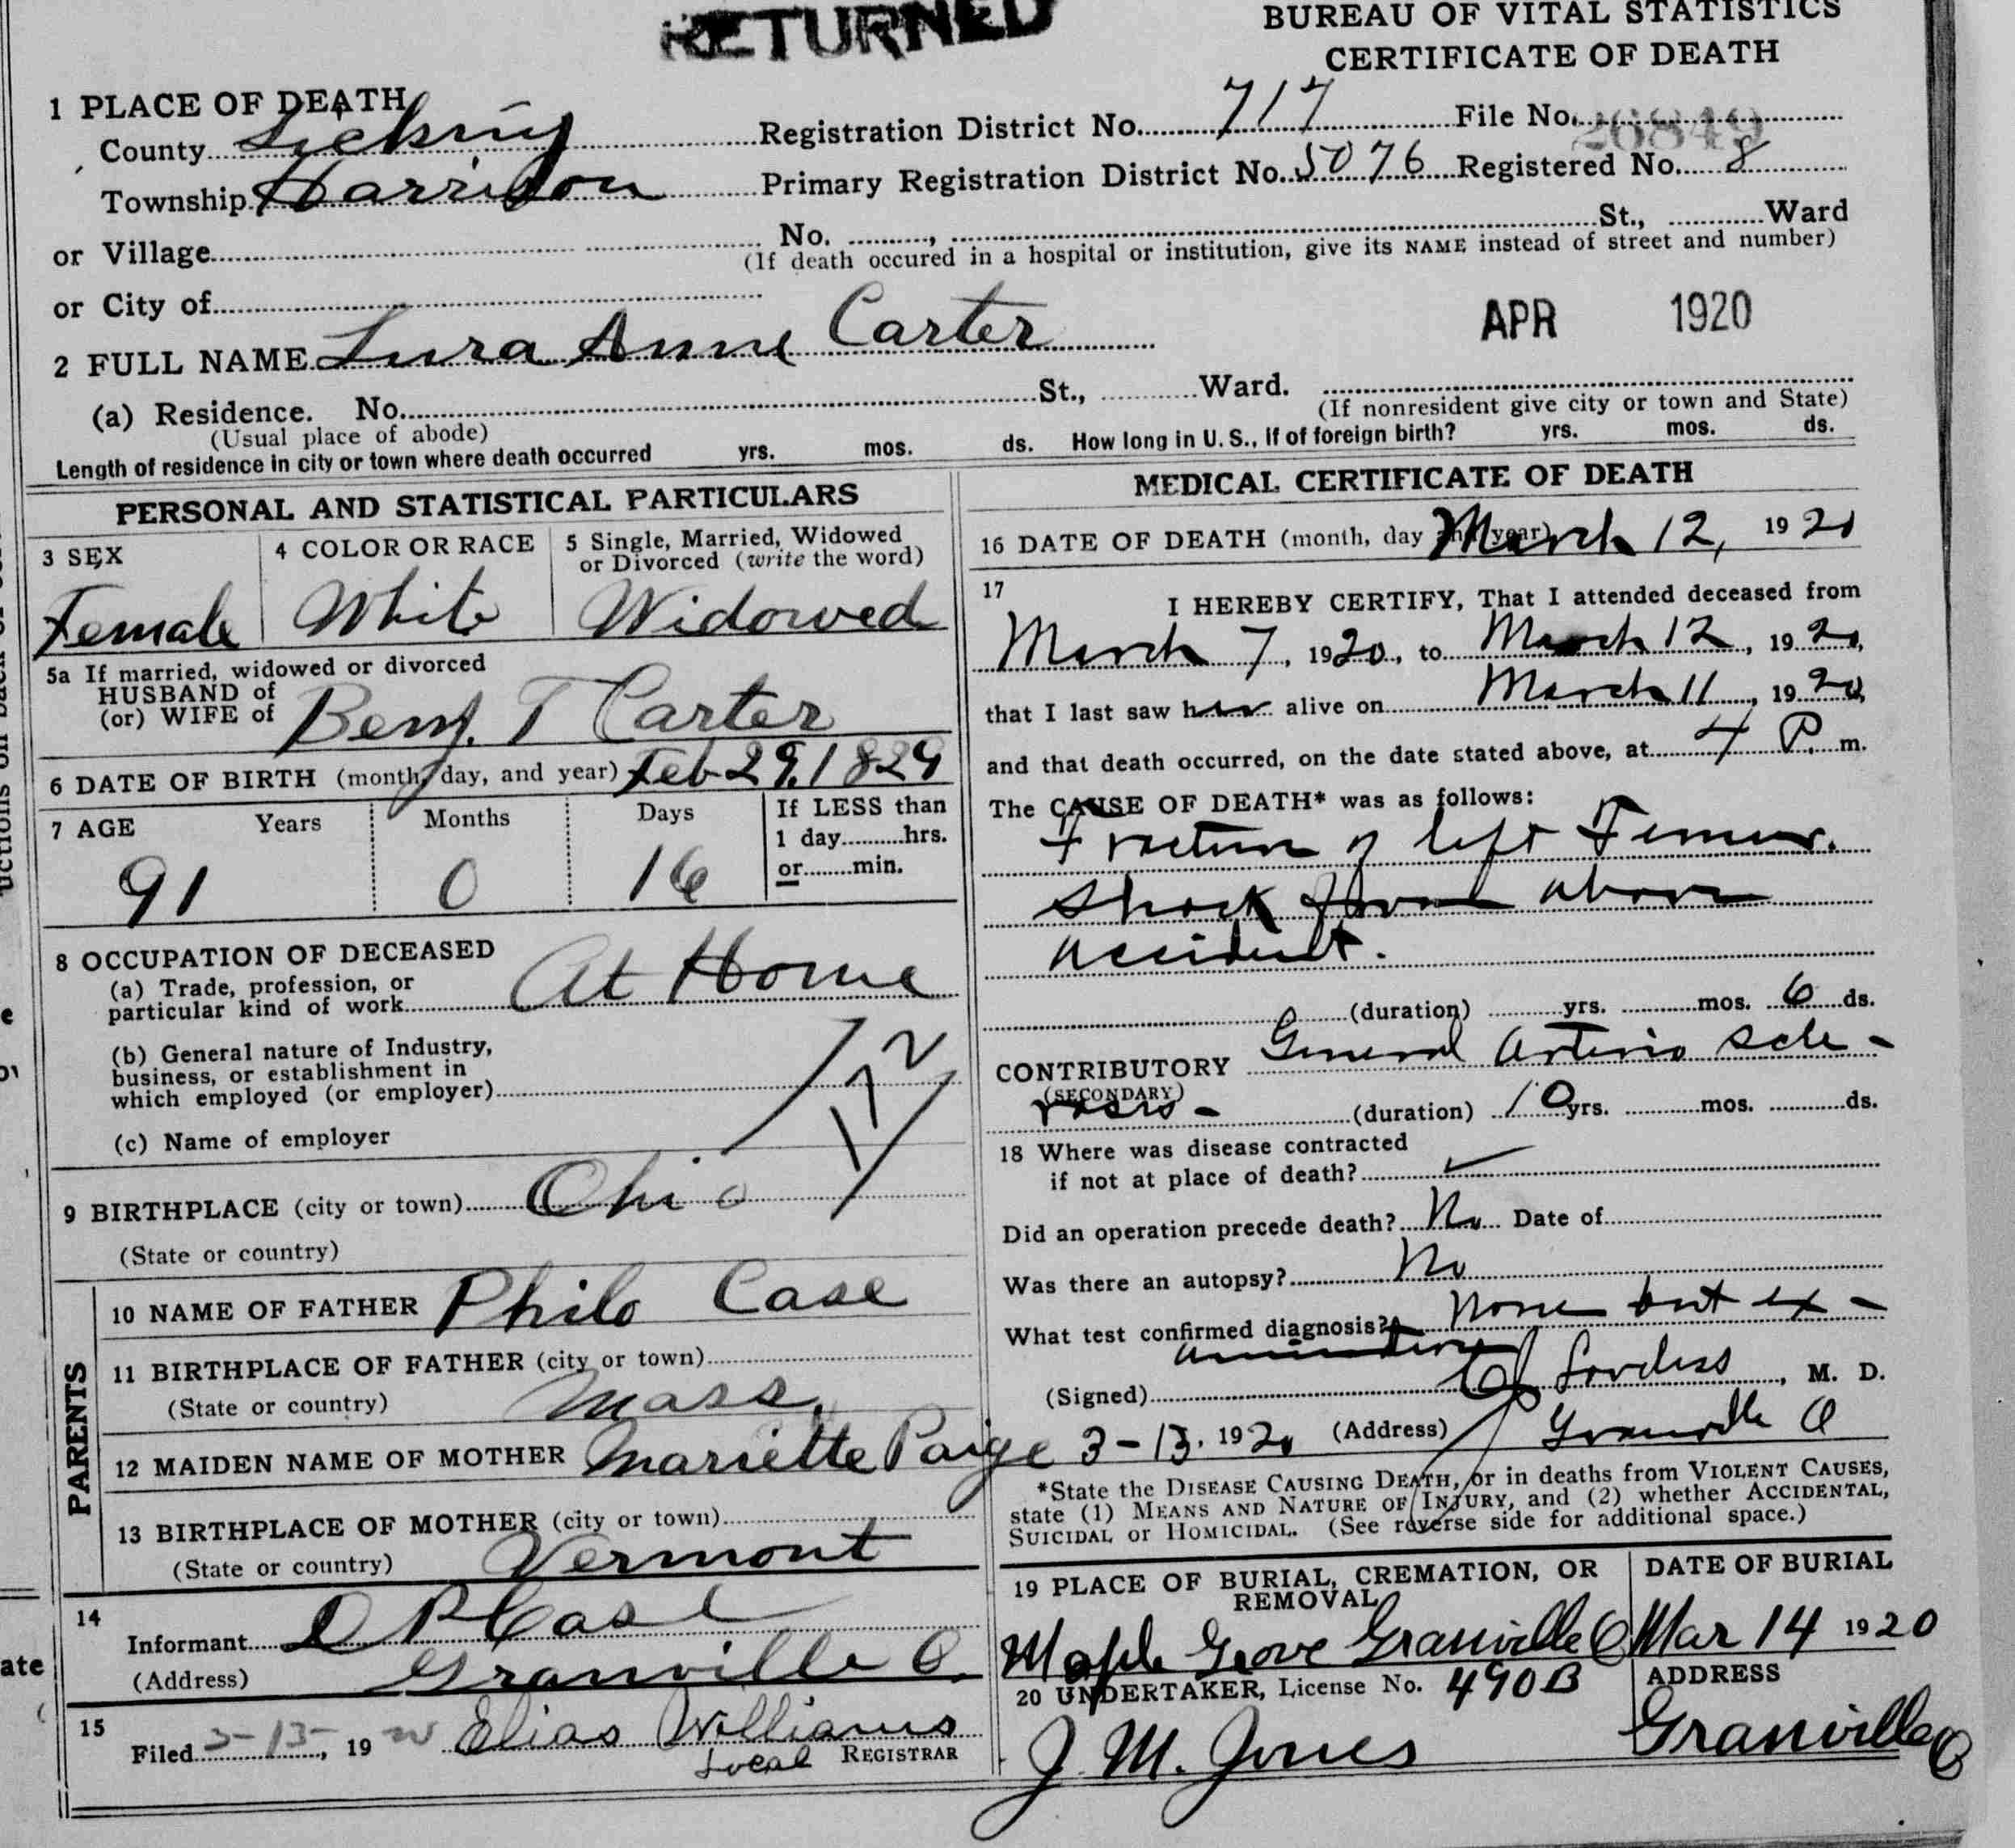 RETURNED
BUREAU OF VITAL STATISTICS
CERTIFICATE OF DEATH
1 PLACE OF DEATH
County Licking Registration District No. 717 File No. 26849
Township Harrison Primary Registration District No. 5076 Registered No. 8
or Village No. , St., Ward
(If death occured in a hospital or institution, give its NAME instead of street and number)
or City of
APR 1920
2 FULL NAME Lura Anne Carter
(a) Residence. No. St., Ward.
(Usual place of abode) (If nonresident give city or town and State)
Length of residence in city or town where death occurred yrs. mos. ds. How long in U. S., if of foreign birth? yrs. mos. ds.
PERSONAL AND STATISTICAL PARTICULARS
3 SEX 4 COLOR OR RACE 5 Single, Married, Widowed
or Divorced (write the word)
Female White Widowed
5a If married, widowed or divorced
HUSBAND of
(or) WIFE of Benj. T Carter
6 DATE OF BIRTH (month, day, and year) Feb 29, 1829
7 AGE Years Months Days If LESS than
1 day hrs.
or min.
91 0 16
8 OCCUPATION OF DECEASED
(a) Trade, profession, or
particular kind of work At Home
(b) General nature of Industry,
business, or establishment in
which employed (or employer)
(c) Name of employer
9 BIRTHPLACE (city or town) Ohio
(State or country)
PARENTS
10 NAME OF FATHER Philo Case
11 BIRTHPLACE OF FATHER (city or town)
(State or country) Mass.
12 MAIDEN NAME OF MOTHER Mariette Paige
13 BIRTHPLACE OF MOTHER (city or town)
(State or country) Vermont
14
Informant D P Case
(Address) Granville O.
15
Filed 3-13-, 19 20 Elias Williams
Local REGISTRAR
MEDICAL CERTIFICATE OF DEATH
16 DATE OF DEATH (month, day and year) March 12, 1920
17
I HEREBY CERTIFY, That I attended deceased from
March 7, 1920, to March 12, 1920,
that I last saw her alive on March 11, 1920,
and that death occurred, on the date stated above, at 4 P. m.
The CAUSE OF DEATH* was as follows:
Fracture of left Femur.
Shock from above
accident.
(duration) yrs. mos. 6 ds.
CONTRIBUTORY General Arterio scle-
(SECONDARY)
rosis - (duration) 10 yrs. mos. ds.
18 Where was disease contracted
if not at place of death?
Did an operation precede death? No Date of
Was there an autopsy? No
What test confirmed diagnosis? None but ex-
amination
(Signed) Loveless, M. D.
3-13, 1920 (Address) Granville O
*State the DISEASE CAUSING DEATH, or in deaths from VIOLENT CAUSES,
state (1) MEANS AND NATURE OF INJURY, and (2) whether ACCIDENTAL,
SUICIDAL or HOMICIDAL. (See reverse side for additional space.)
19 PLACE OF BURIAL, CREMATION, OR
REMOVAL
DATE OF BURIAL
Maple Grove Granville O Mar 14 1920
20 UNDERTAKER, License No. 490B ADDRESS
J. M. Jones Granville O